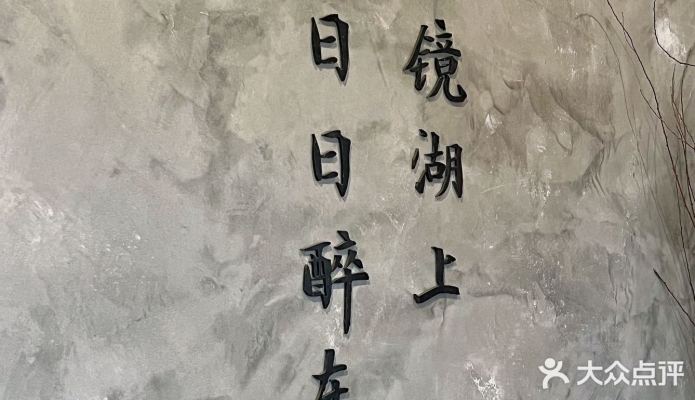 镜湖上
日日醉在
大众点评